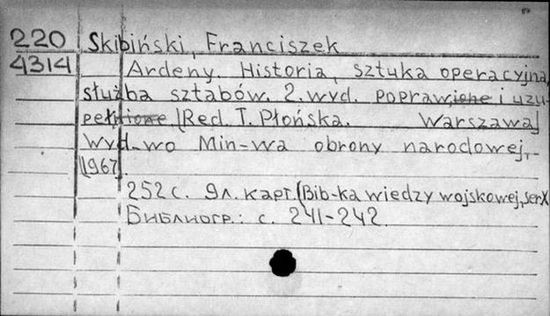 220 Skibiński, Franciszek
4314 Ardeny. Historia, sztuka operacyjna,
służba sztabów. 2. wyd. poprawione i uzu
pełnione [Red. T. Płońska. Warszawa]
Wyd-wo Min-wa obrony narodowej,
[1967].
252 с. 9 л. карт. (Bib-ka wiedzy wojskowej, ser X
Библиогр.: с. 241-242.